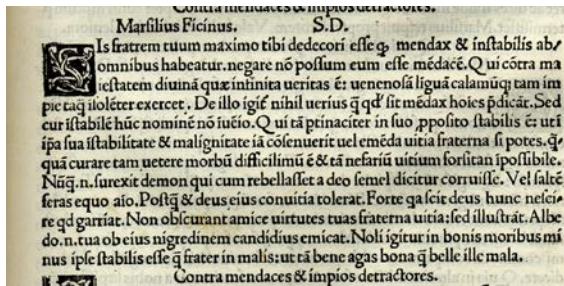 Contra mendaces & impios detractores.
Marsilius Ficinus. S.D.
SIs fratrem tuum maximo tibi dedecori esse ꝙ mendax & instabilis ab/
omnibus habeatur. negare nō possum eum esse mēdacē. Qui cōtra ma
iestatem diuinā quæ infinita ueritas ē: uenenosā liguā calamūqꝫ tam im
pie taꝗ̄ isolēter exercet. De illo igit᷑ nihil uerius ꝗ̄ qd' sit mēdax hoīes p̄dicār. Sed
cur istabilē hūc nominē nō iuēio. Qui tā ptinaciter in suo ꝓposito stabilis ē: uti
ip̄a sua istabilitate & malignitate iā cōsenuerit uel emēda uitia fraterna si potes. ꝗ̄/
quā curare tam uetere morbū difficilimū ē & tā nefariū uitium forsitan ipossibile.
Nūꝗ̄.n. surexit demon qui cum rebellasset a deo semel dicitur corruisse. Vel saltē
feras equo aīo. Postꝗ̄ & deus eius conuitia tolerat. Forte qa scit deus hunc nesci/
re qd garriat. Non obscurant amice uirtutes tuas fraterna uitia: sed illustrāt. Albe
do.n. tua ob eius nigredinem candidius emicat. Noli igitur in bonis moribus mi
nus ipse stabilis esse ꝗ̄ frater in malis: ut tā bene agas bona ꝗ̄ belle ille mala.
Contra mendaces & impios detractores.